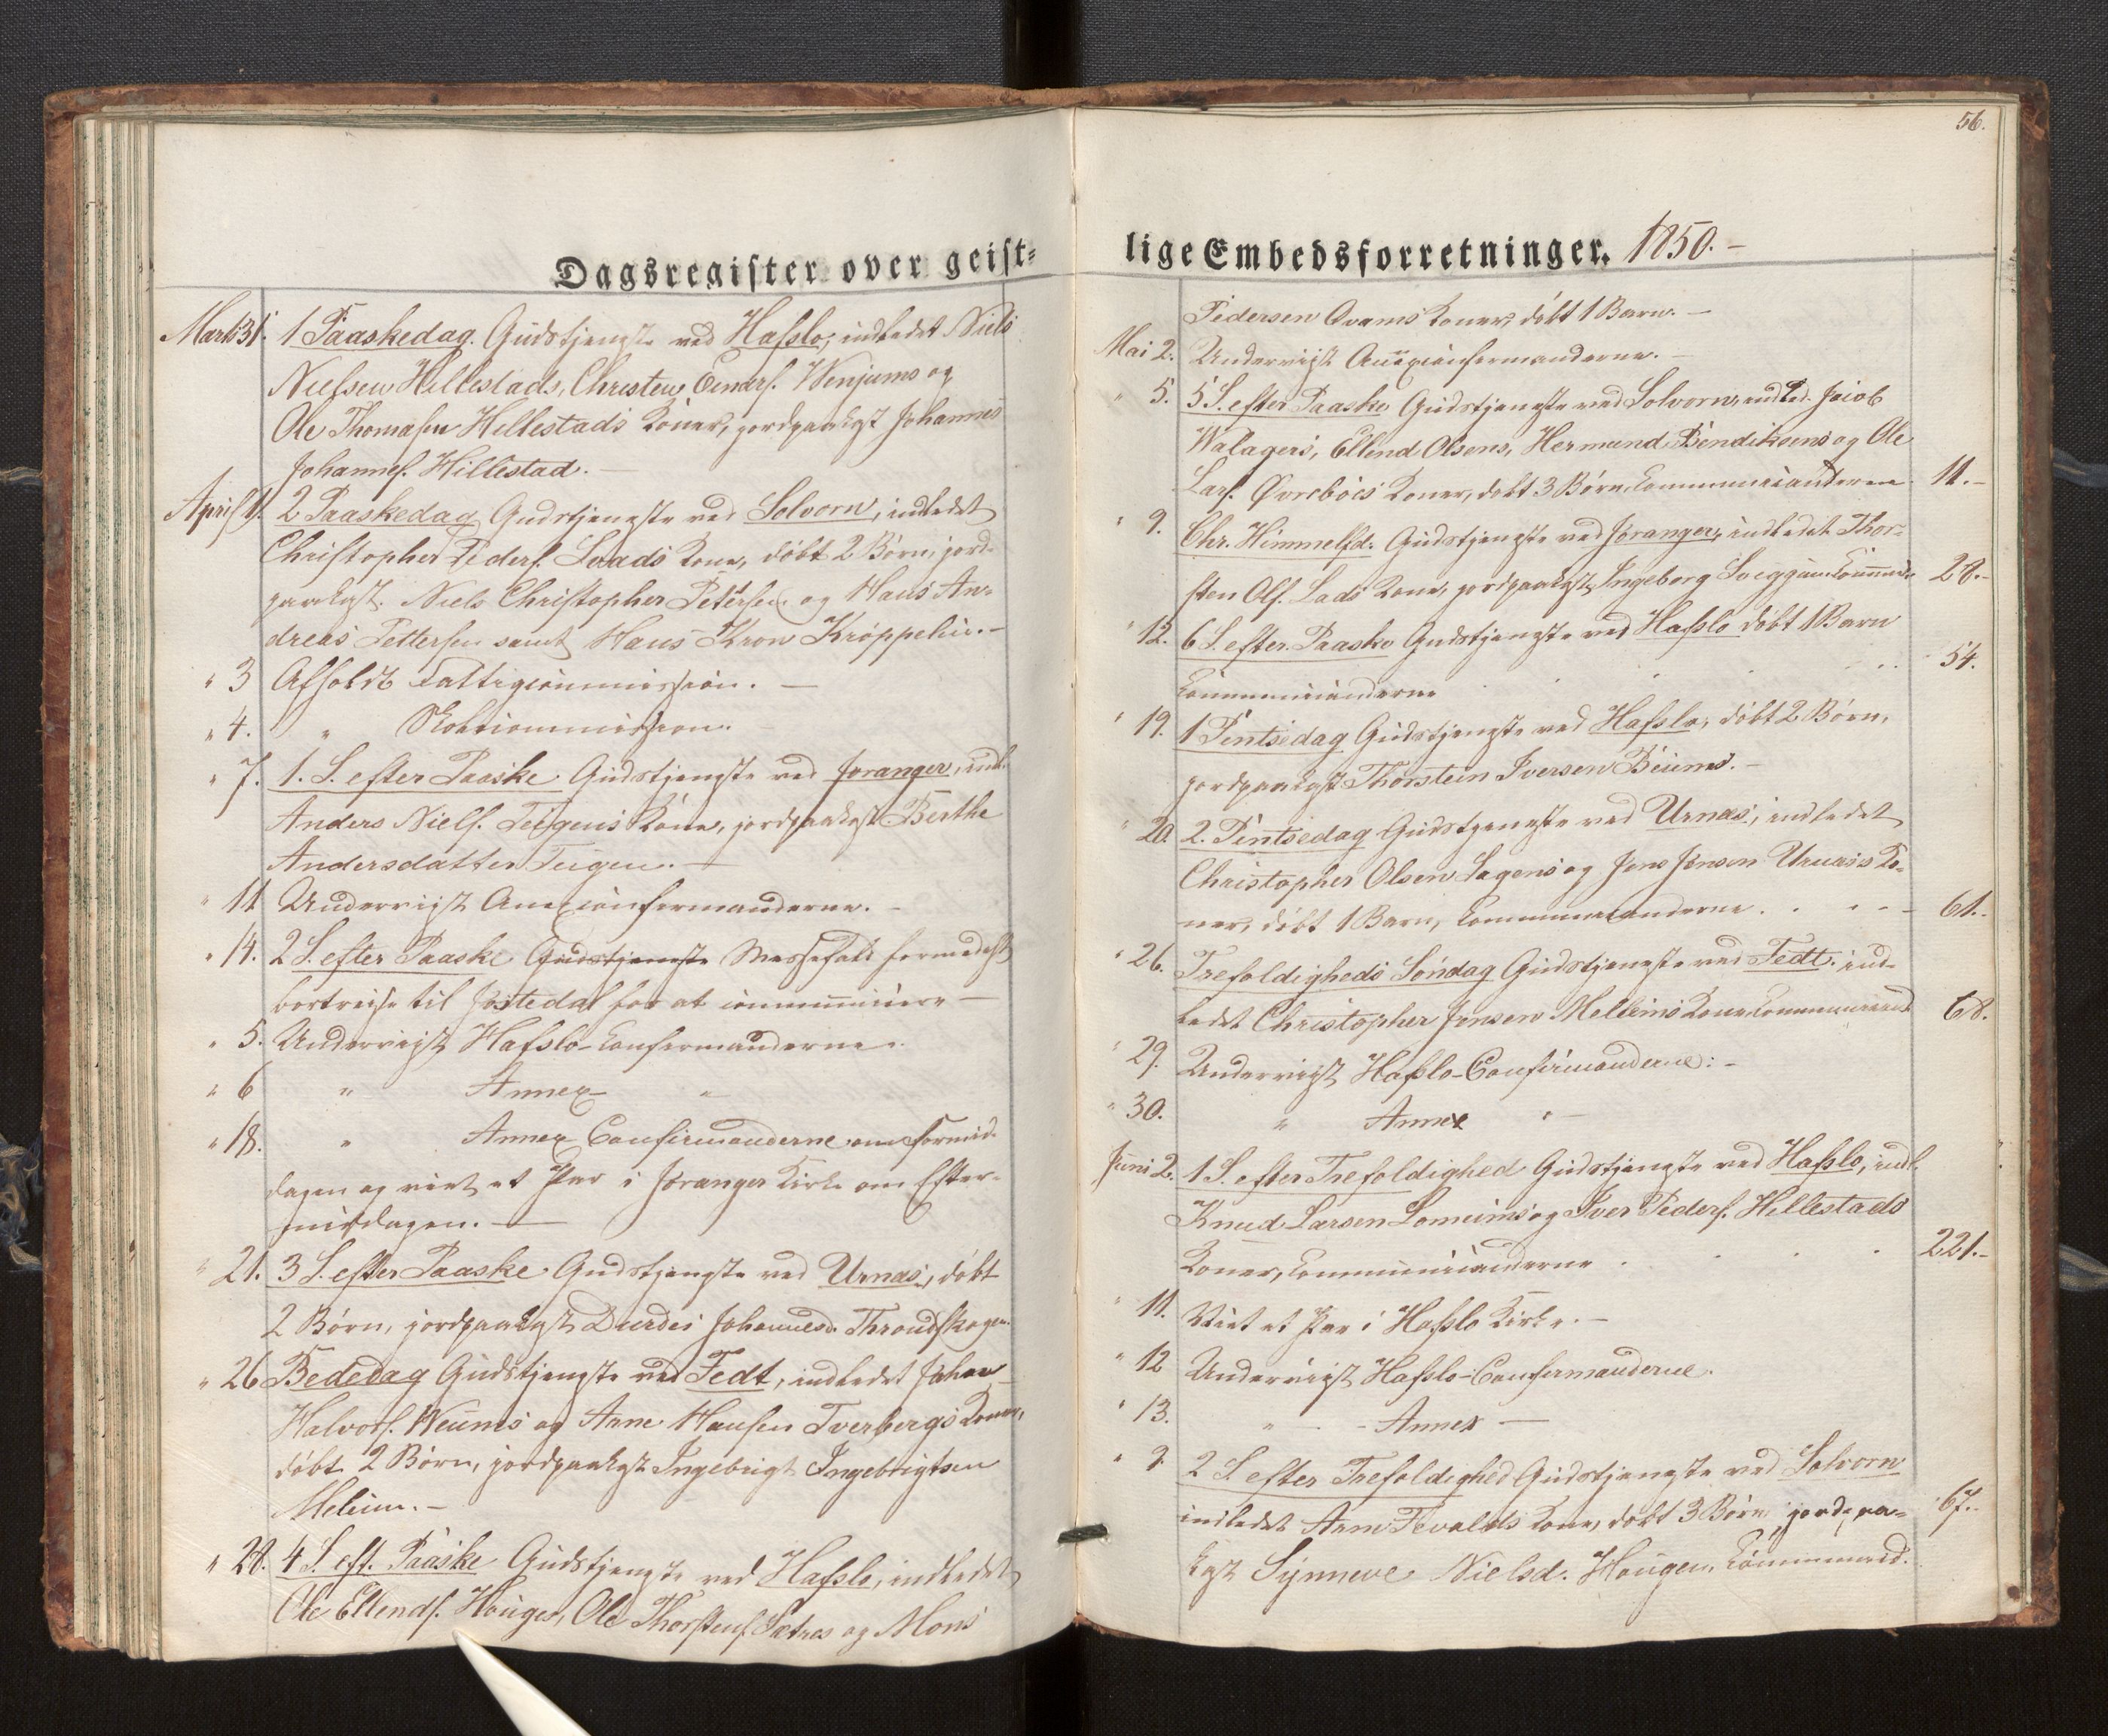 Dagsregister over geist-
Marts 31. 1 Paaskedag. Gudstjeneste ved Hafslo, indledet Niels
Nielsen Hillestads, Christen Ws. Wenjums og
Ole Thomasen Hillestads Koner, jordpaakast Johannes
Johannes. Hillestad.
April 1. 2 Paaskedag Gudstjeneste ved Solvorn, indledet
Christopher Peders. Kone, döbt 2 Börn, jord-
paakast. Niels Christopher Petersen og Hans An-
dreas Pettersen samt Hans Kron
" 3 Afholdt Fattigcommission.
" 4. " Skolecommission.
" 7. 1. S. efter Paaske Gudstjeneste ved Joranger, indl.
Anders Niels. Teigens Kone, jordpaakast Berthe
Andersdatter Teigen.
" 11 Underviist Annexconfirmanderne.
" 14. 2 S. efter Paaske Gudstjeneste Messefald formedelst
bortreise til Jostedal for at communicere
" 5. Underviist Hafslo-Confirmanderne.
" 6 " Annex "
" 18. " Annex Confirmanderne om Formid-
dagen og viet et Par i Joranger Kirke om Efter-
middagen.
" 21. 3 S. efter Paaske Gudstjeneste ved Urnæs, döbt
2 Börn, jordpaakast Durdei Johannesd. Throndskogen.
" 26 Bededag Gudstjeneste ved Fedt, indledet Johan
Halvors. og Arne Hansen Tverbergs Koner,
döbt 2 Börn, jordpaakast Ingebrigt Ingebrigtsen
Meleim.
" 28. 4 S. eft. Paaske Gudstjeneste ved Hafslo, indledet
Ole Ellends. Hauges, Ole Thorstens. Sætres og Mons
56.
lige Embedsforretninger. 1850.
Pedersen Qvams Koner, döbt 1 Barn.
Mai 2. Underviist Annexconfirmanderne.
" 5. 5 S. efter Paaske Gudstjeneste ved Solvorn, indled. Jacob
Walagers, Ellend Olsens, Hermund Bendiksens og Ole
Lars. Øvreböes Koner, döbt 3 Börn, Communicanterne 11.
" 9. Chr. Himmelfd. Gudstjeneste ved Joranger, indledet Thor-
sten Ols. Lads Kone, jordpaakast Ingeborg Communic. 28.
" 12. 6 S. efter Paaske Gudstjeneste ved Hafslo döbt 1 Barn
Communicanterne 54.
" 19. 1 Pintsedag Gudstjeneste ved Hafslo, döbt 2 Börn,
jordpaakast Thorstein Iversen
" 20. 2. Pintsedag Gudstjeneste ved Urnæs, indledet
Christopher Olsen Lagens og Jens Jensen Urnæs's Ko-
ner, döbt 1 Barn, Communicanterne 61.
" 26. Trefoldigheds Söndag Gudstjeneste ved Fedt. ind-
ledet Christopher Jensen Melheims Kone, Communicant. 68.
" 29. Underviist Hafslo-Confirmanderne.
" 30. " Annex "
Juni 2. 1 S. efter Trefoldighed Gudstjeneste ved Hafslo, indl.
Knud Larsen Lomeims og Iver Peders. Hillestads
Koner, Communicanterne 221.
" 11. Viet et Par i Hafslo Kirke.
" 12 Underviist Hafslo-Confirmanderne.
" 13. " Annex
" 9. 2 S. efter Trefoldighed Gudstjeneste ved Solvorn
indledet Arne Kone, döbt 3 Börn, jordpaa- 67.
kast Synneve Nielsd. Haugen, Communicd.